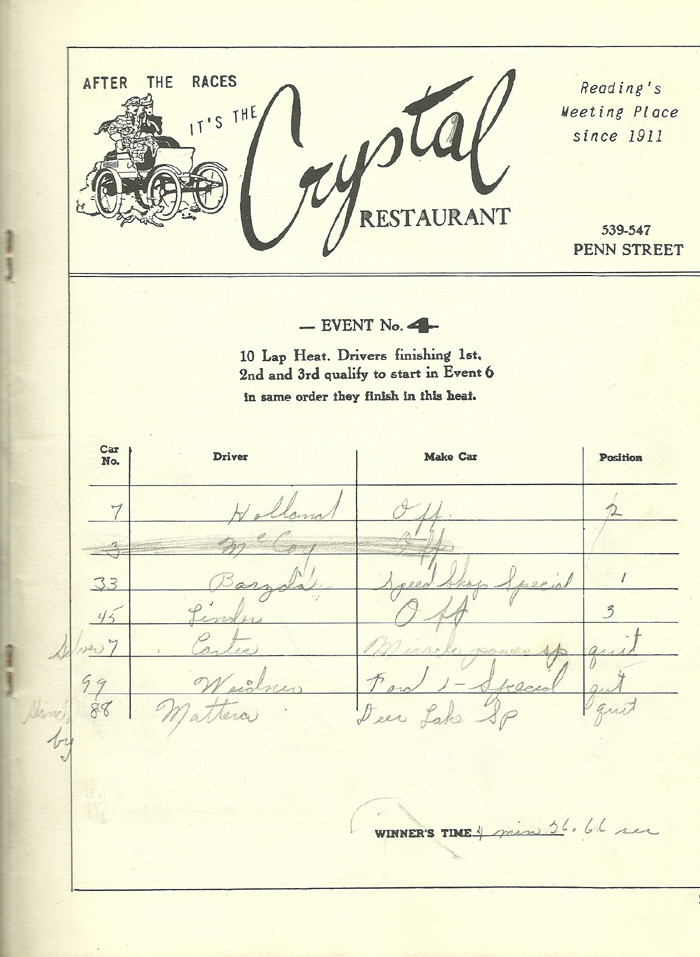 AFTER THE RACES
IT'S THE
Crystal
RESTAURANT
Reading's
Meeting Place
since 1911
539-547
PENN STREET
— EVENT No. 4 —
10 Lap Heat. Drivers finishing 1st,
2nd and 3rd qualify to start in Event 6
in same order they finish in this heat.
Car No. Driver Make Car Position
7 Holland Off. 2
3 McCoy Off.
33 Barzda Speed Shop Special 1
45 Linder Off 3
Silver 7 Carter Miracle power sp quit
99 Weidner Ford Special quit
88 Mattera Deer Lake Sp quit
by
WINNER'S TIME 4 min 26.66 sec